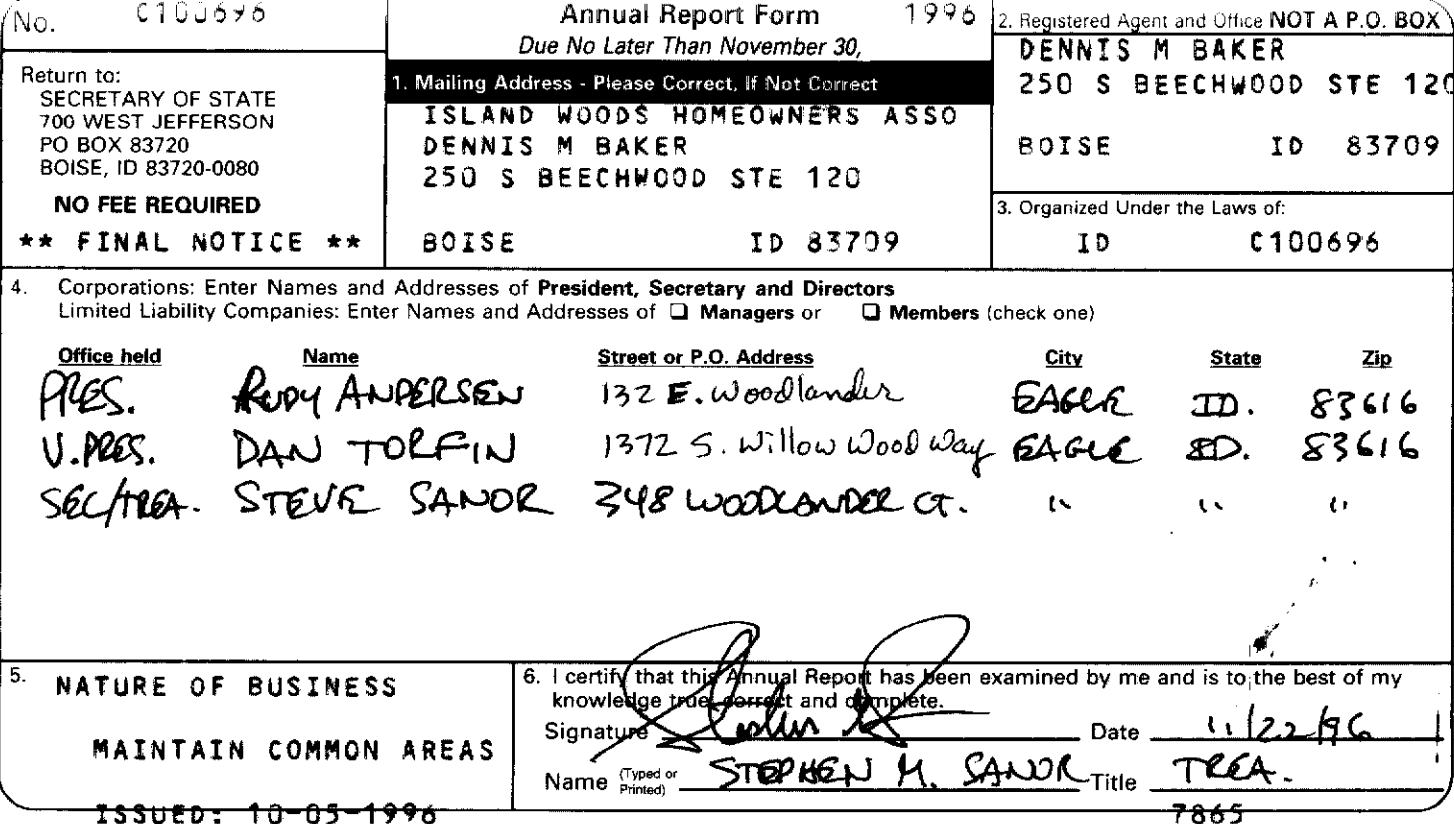 No. C100696
Annual Report Form 1996
Due No Later Than November 30,
Return to:
SECRETARY OF STATE
700 WEST JEFFERSON
PO BOX 83720
BOISE, ID 83720-0080
NO FEE REQUIRED
** FINAL NOTICE **
1. Mailing Address - Please Correct, If Not Correct
ISLAND WOODS HOMEOWNERS ASSO
DENNIS M BAKER
250 S BEECHWOOD STE 120
BOISE ID 83709
2. Registered Agent and Office NOT A P.O. BOX
DENNIS M BAKER
250 S BEECHWOOD STE 120
BOISE ID 83709
3. Organized Under the Laws of:
ID C100696
4. Corporations: Enter Names and Addresses of President, Secretary and Directors
Limited Liability Companies: Enter Names and Addresses of ❑ Managers or ❑ Members (check one)
Office held Name Street or P.O. Address City State Zip
PRES. RUDY ANDERSEN 132 E. Woodlander EAGLE ID. 83616
V.PRES. DAN TORFIN 1372 S. Willow Wood Way EAGLE ID. 83616
SEC/TREA. STEVE SANOR 348 WOODLANDER CT. " " "
5. NATURE OF BUSINESS
MAINTAIN COMMON AREAS
6. I certify that this Annual Report has been examined by me and is to the best of my
knowledge true, correct and complete.
Signature Date 11/22/96
Name (Typed or Printed) STEPHEN M. SANOR Title TREA.
ISSUED: 10-05-1996 7865